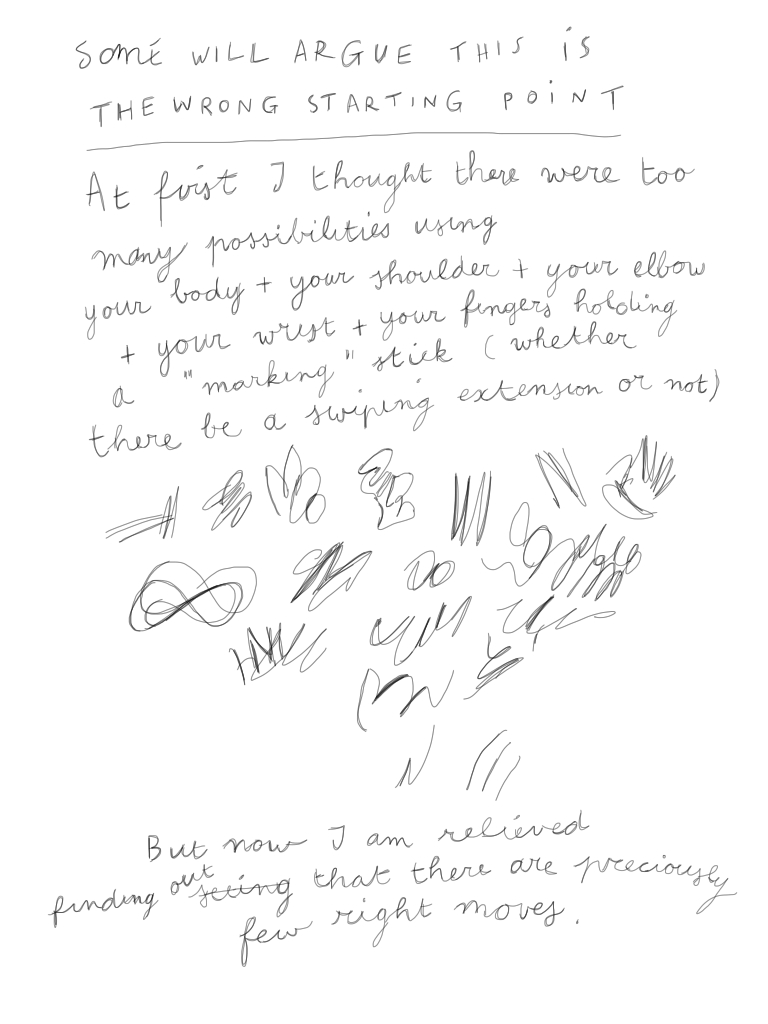 SOME WILL ARGUE THIS IS
THE WRONG STARTING POINT
At first I thought there were too
many possibilities using
your body + your shoulder + your elbow
+ your wrist + your fingers holding
a "marking" stick (whether
there be a swiping extension or not)
But now I am relieved
finding out seeing that there are preciously
few right moves.